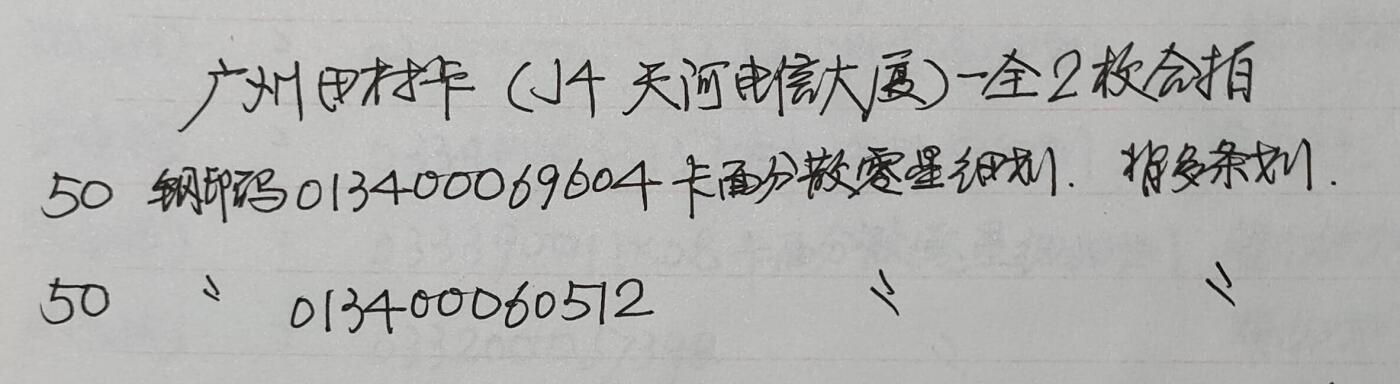 广州田村卡（J4 天河电信大厦）一全2枚合拍
50 钢印码013400069604卡面分散零星细划. 背多条划.
50 〃 013400060512 〃 〃